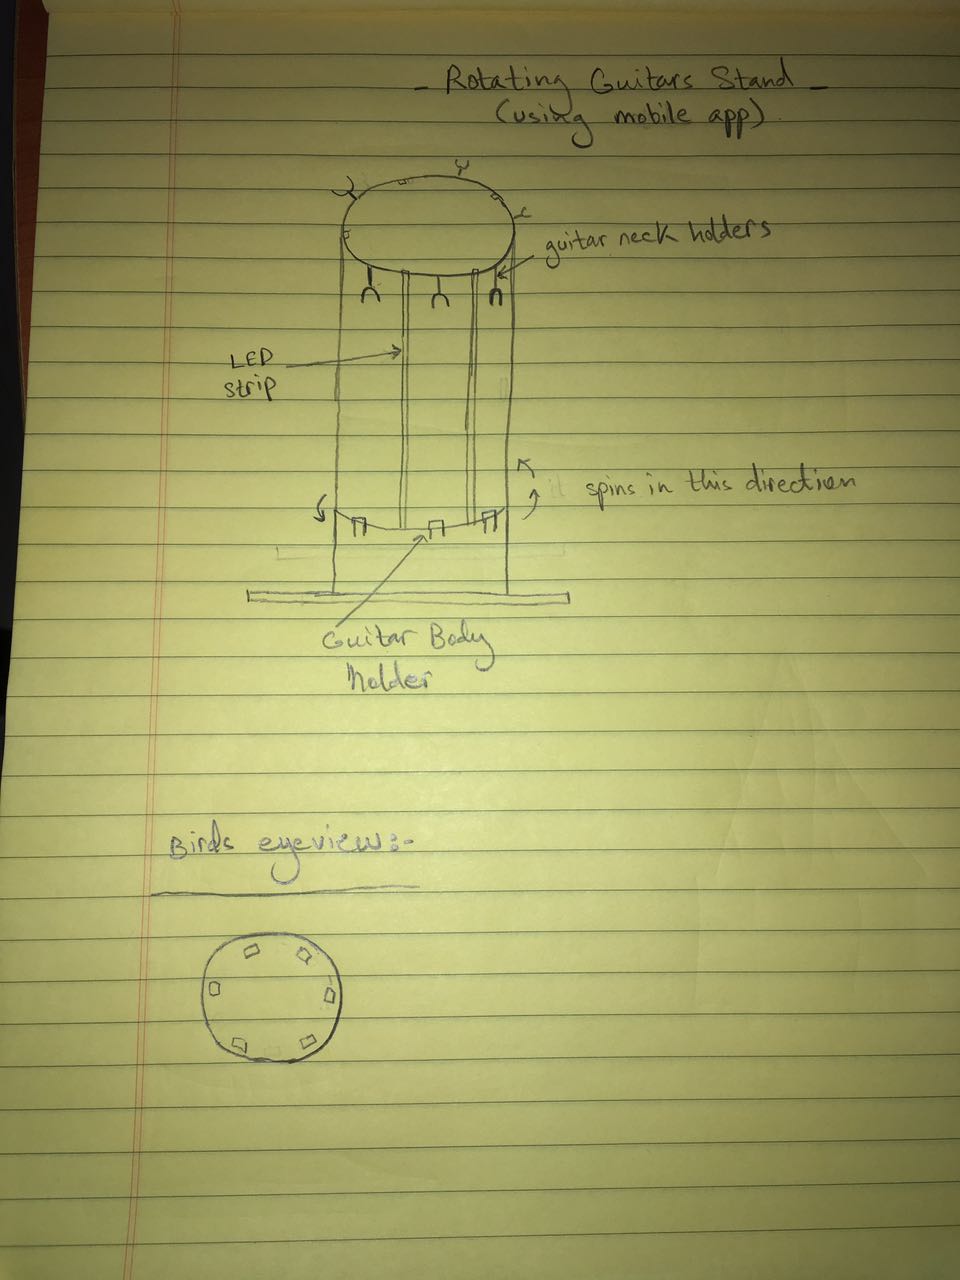 - Rotating Guitars Stand -
(using mobile app)
guitar neck holders
LED
strip
it spins in this direction
Guitar Body
holder
Birds eyeview:-